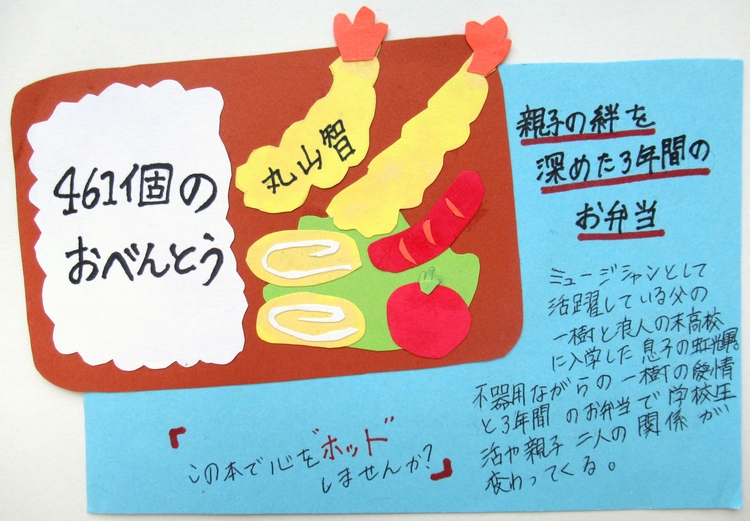 461個の
おべんとう
丸山智
親子の絆を
深めた3年間の
お弁当
ミュージシャンとして
活躍している父の
一樹と浪人の末高校
に入学した息子の虹輝。
不器用ながらの一樹の愛情
と3年間のお弁当で学校生
活や親子二人の関係が
変わってくる。
『この本で心を"ホッド"
しませんか?』